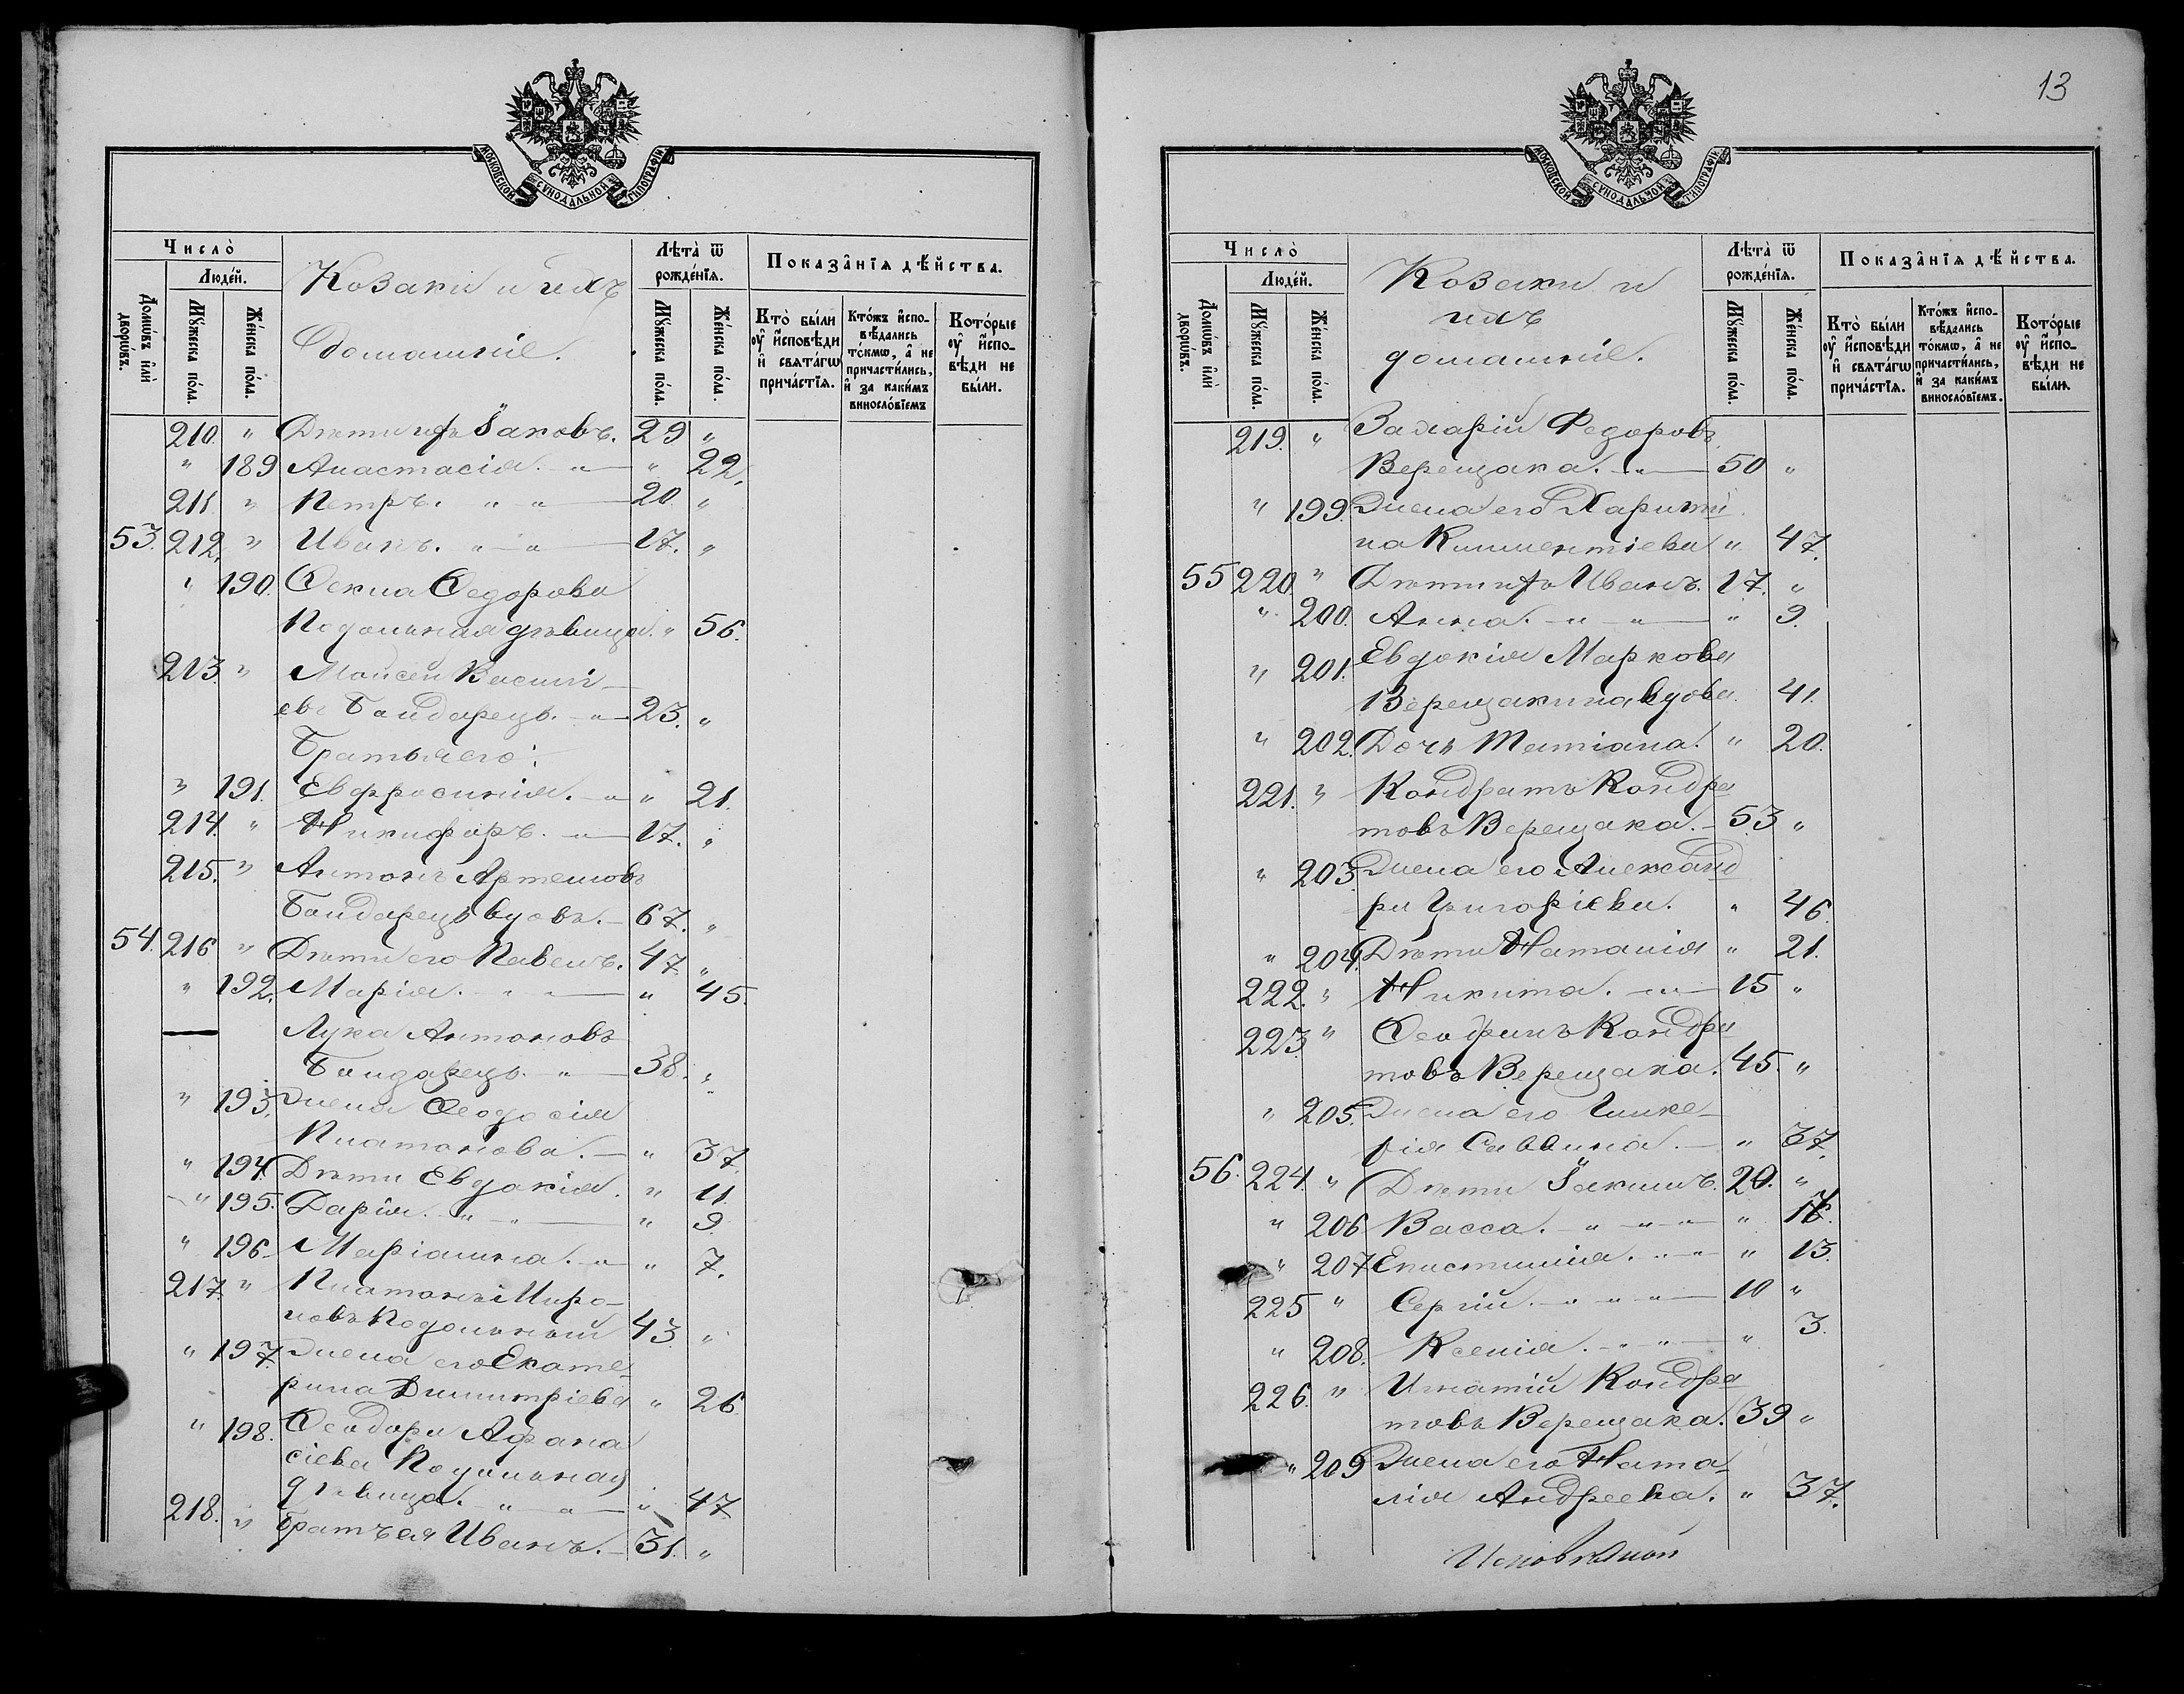 МОСКОВСКОЙ СѴНОДАЛЬНОЙ ТИПОГРАФІИ
Число̀
Люде́й.
Домѡ́въ и҆лѝ дворѡ́въ.
Мꙋ́жеска по́ла.
Же́нска по́ла.
Козаки и ихъ
домашніе.
Лѣта̀ ѿ рожде́нїѧ.
Мꙋ́жеска по́ла.
Же́нска по́ла.
Показа̑нїѧ дѣ́йства.
Кто̀ бы́ли оу҆ и҆́сповѣди и҆ свѧта́гѡ прича́стїѧ.
Кто́жъ и҆спо- вѣ́дались то́кмѡ, а҆ не причасти́лись, и҆ за каки́мъ винослові́емъ
Кото́рые оу҆ и҆́спо- вѣди не бы́ли.
210. " Дѣти ихъ Іаковъ. 29 "
" 189 Анастасія. " " 22.
211. " Петръ. " " 20 "
53. 212. " Иванъ. " " 17. "
" 190. Ѳекла Ѳедорова
Подольная дѣвица. " 56.
213. " Моисей Васили-
евъ Бондарецъ. " 23. "
Братья его:
" 191. Евфросинія. " " 21.
214. " Никифоръ. " 17. "
215. " Антонъ Артемовъ
Бондарецъ вдовъ. 67. "
54. 216 " Дѣти его Павелъ. 47 "
" 192. Марія. " " " 45.
— Лука Антоновъ
Бондарецъ. " 38. "
" 193. Жена Ѳеодосія
Платонова. " 37.
" 194. Дѣти Евдокія. " 11.
" 195. Дарія. " " " 9.
" 196. Маріамна. " " 7.
217. " Платонъ Миро-
новъ Подольный 43 "
" 197. Жена его Екате-
рина Димитріева " 26.
" 198. Ѳеодора Афана
сіева Подольная
дѣвица. " " " 47.
218. " Братъ ея Иванъ. 31. "
13
МОСКОВСКОЙ СѴНОДАЛЬНОЙ ТИПОГРАФІИ
Число̀
Люде́й.
Домѡ́въ и҆лѝ дворѡ́въ.
Мꙋ́жеска по́ла.
Же́нска по́ла.
Козаки и
ихъ
домашніе.
Лѣта̀ ѿ рожде́нїѧ.
Мꙋ́жеска по́ла.
Же́нска по́ла.
Показа̑нїѧ дѣ́йства.
Кто̀ бы́ли оу҆ и҆́сповѣди и҆ свѧта́гѡ прича́стїѧ.
Кто́жъ и҆спо- вѣ́дались то́кмѡ, а҆ не причасти́лись, и҆ за каки́мъ винослові́емъ.
Кото́рые оу҆ и҆́спо- вѣди не бы́ли.
219. " Захарій Федоровъ
Верещака. " 50 "
" 199. Жена его Харити
на Климентіева " 47.
55 220 " Дѣти ихъ Иванъ. 17. "
" 200. Анна. " " " 9.
" 201. Евдокія Маркова
Верещакина вдова. 41.
" 202. Дочь Татіана. " 20.
221. " Кондратъ Кондра
товъ Верещака. 53 "
" 203. Жена его Александ
ра Григоріева. " 46.
" 204. Дѣти Наталія " 21.
222. " Никита. " 15 "
223 " Ѳеофилъ Кондра
товъ Верещака. 45. "
" 205. Жена его Глике-
рія Саввина. " 37.
56. 224. " Дѣти Іакимъ. 20. "
" 206 Васса. " " " "
" 207 Епистимія. " " " 13.
225 " Сергій. " " " 10 "
" 208. Ксенія. " " " 3.
226. " Игнатій Кондра
товъ Верещака. 39 "
" 209 Жена его Ната-
лія Андреева. " 37.